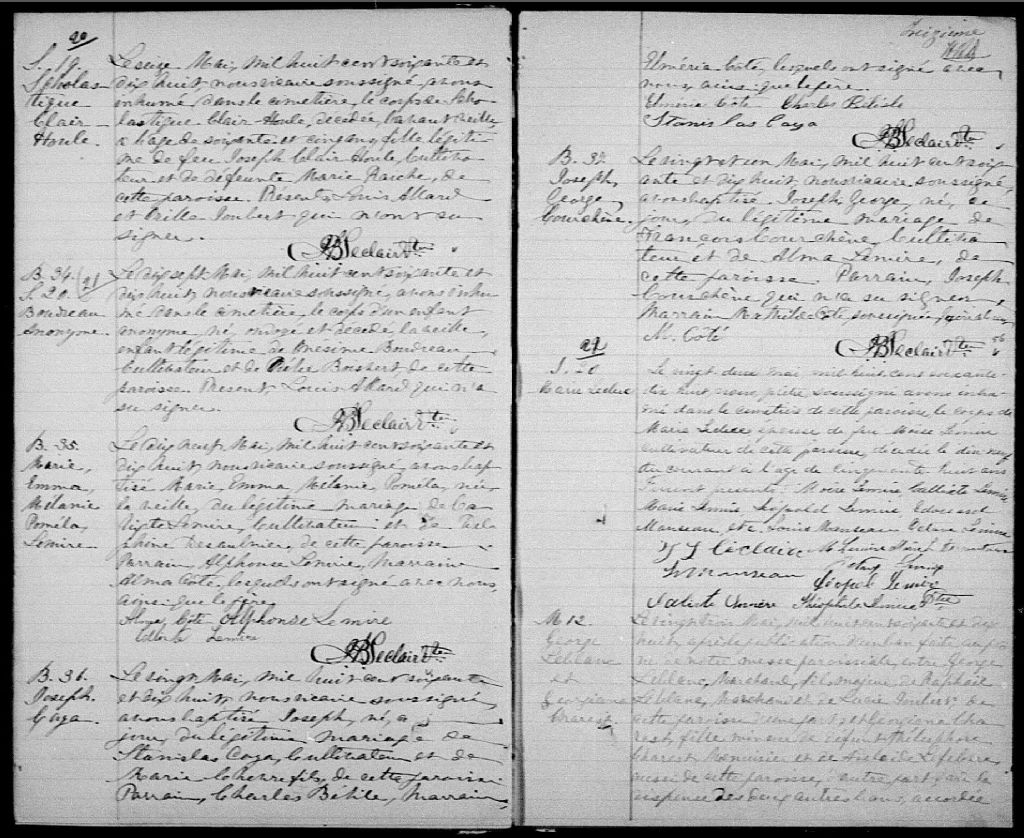 20
S. 19.
Scholas-
tique
Clair
Houle.
Le seize Mai, mil huit cent soixante et
dix huit, nous vicaire soussigné, avons
inhumé dans le cimetière, le corps de Scho-
lastique Clair Houle, décédée, l'avant veille,
à l'age de soixante et cinq ans, fille légiti-
me de feu Joseph Clair Houle, Cultiva-
teur et de défeunte Marie Raiche, de
cette paroisse. Présents Louis Allard
et Joubert qui n'ont su
signer.
JB Leclair Ptre
B. 34.
S. 20.
Boudreau
Anonyme.
Le dix sept Mai, mil huit cent soixante et
dix huit, nous vicaire soussigné, avons inhu-
mé dans le cimetière, le corps d'un enfant
anonyme, né, ondoyé et décédé la veille,
enfant légitime de Onésime Boudreau
Cultivateur et de Boisvert de cette
paroisse. Présent, Louis Allard qui n'a
su signer.
JB Leclair Ptre
B. 35.
Marie,
Emma,
Mélanie
Poméla,
Lemire
Le dix neuf Mai, mil huit cent soixante et
dix huit, nous vicaire soussigné, avons bap-
tisé Marie, Emma Mélanie, Poméla, née
la veille, du légitime mariage de Ca-
lixte Lemire, Cultivateur et de Del-
phine Desaulnier, de cette paroisse
Parrain, Alphonse Lemire, Marraine
Alma Coté, lesquels ont signé avec nous
ainsi que le père.
Coté Alphonse Lemire
Lemire
JB Leclair Ptre
B. 36.
Joseph
Caya
Le vingt Mai, mil huit cent soixante
et dix huit, nous vicaire soussigné,
avons baptisé Joseph, né, ce
jour, du légitime mariage de
Stanislas Caya, Cultivateur et de
Marie Chenerefils, de cette paroisse
Parrain, Charles Bélile, Marraine
Treizième
Elméria Coté, lesquels ont signé avec
nous, ainsi que le père.
Elméria Côté Charles Bélisle
Stanislas Caya
JB Leclair Ptre
B. 37.
Joseph,
George,
Courchêne.
Le vingt et un Mai, mil huit cent soix-
ante et dix huit, nous vicaire soussigné,
avons baptisé Joseph George, né, ce
jour, du légitime mariage de
François Courchêne, Cultiva-
teur et de Alma Lemire, de
cette paroisse. Parrain, Joseph
Courchêne qui n'a su signer,
Marraine Mathilde Côté, soussignée
M. Coté
JB Leclair Ptre
S. 20
Marie Leduc
Le vingt deux mai mil huit cent soixante-
dix huit nous, prêtre, soussigné avons inhu-
mé dans le cimetière de cette paroisse le corps de
Marie Leduc, épouse de feu Moïse Lemire
cultivateur de cette paroisse, décédée le dix neuf
du courant à l'age de cinquante huit ans
Furent présents: Moïse Lemire Calliste Lemire
Marie Lemire Léopold Lemire, Edouard
Manseau, ptre Louis Manseau Lemire
Leclaire
Manseau
Léopol Lemire
Lemire Théophile Lemire Ptre
M. 12.
George
Leblanc
et
Georgianna
Charest.
Le vingt trois Mai, mil huit cent soixante et dix
huit, après la publication d'un ban faite au prô-
ne de notre messe paroissiale, entre George
Leblanc, Marchand, fils majeur de Raphael
Leblanc, Marchand et de Lucie Joubert de
cette paroisse d'une part, et Georgiana Cha-
rest, fille mineure de défunt Télesphore
Charest, Menuisier et de Adelaide Lefebvre
aussi de cette paroisse, d'autre part, vu la
dispense des deux autres bans, accordée